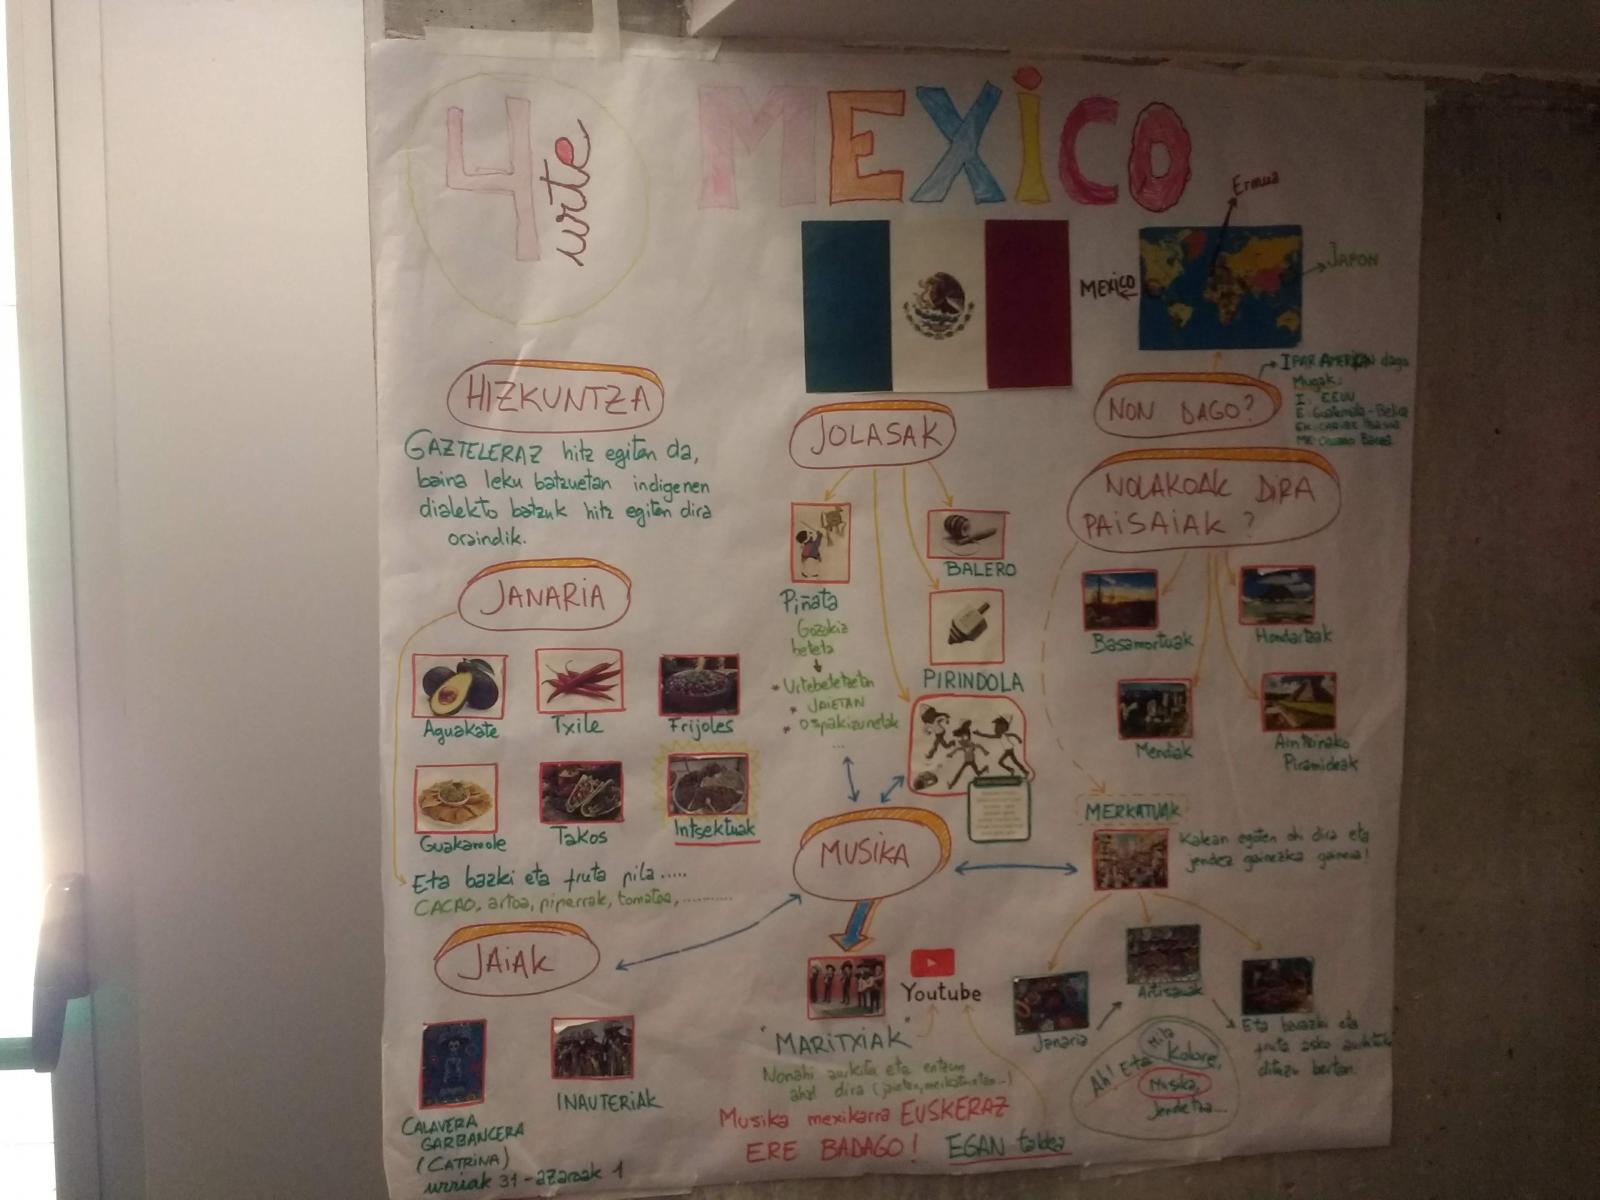 4 urte
MEXICO
Ermua
MEXICO
JAPON
HIZKUNTZA
GAZTELERAZ hitz egiten da,
baina leku batzuetan indigenen
dialekto batzuk hitz egiten dira
oraindik.
JANARIA
Aguakate
Txile
Frijoles
Guakamole
Takos
Intsektuak
Eta bazki eta fruta pila.....
CACAO, artoa, piperrak, tomatea, ..........
JAIAK
CALAVERA
GARBANCERA
(CATRINA)
urriak 31 - azaroak 1
INAUTERIAK
JOLASAK
Piñata
Gozokiz
beteta
* Urtebetetzetan
* JAIETAN
* Ospakizunetak
...
BALERO
PIRINDOLA
MUSIKA
"MARITXIAK"
Youtube
Nonahi aurkitu eta entzun
ahal dira (jaietan, merkatuetan...)
Musika mexikarra EUSKERAZ
ERE BADAGO! EGAN taldea
NON DAGO?
IPAR AMERIKAN dago
Mugak:
I: EEUU
E: Guatemala - Belice
NOLAKOAK DIRA
PAISAIAK?
Basamortuak
Hondartzak
Mendiak
Aintzinako
Piramideak
MERKATUAK
Kalean egoten ohi dira eta
jendez gainezka gainera!
Janaria
Artisauak
Eta barazki eta
fruta asko aurkituko
dituzu bertan.
Ah! Eta Mila
Kolore,
Musika,
Jendetza...